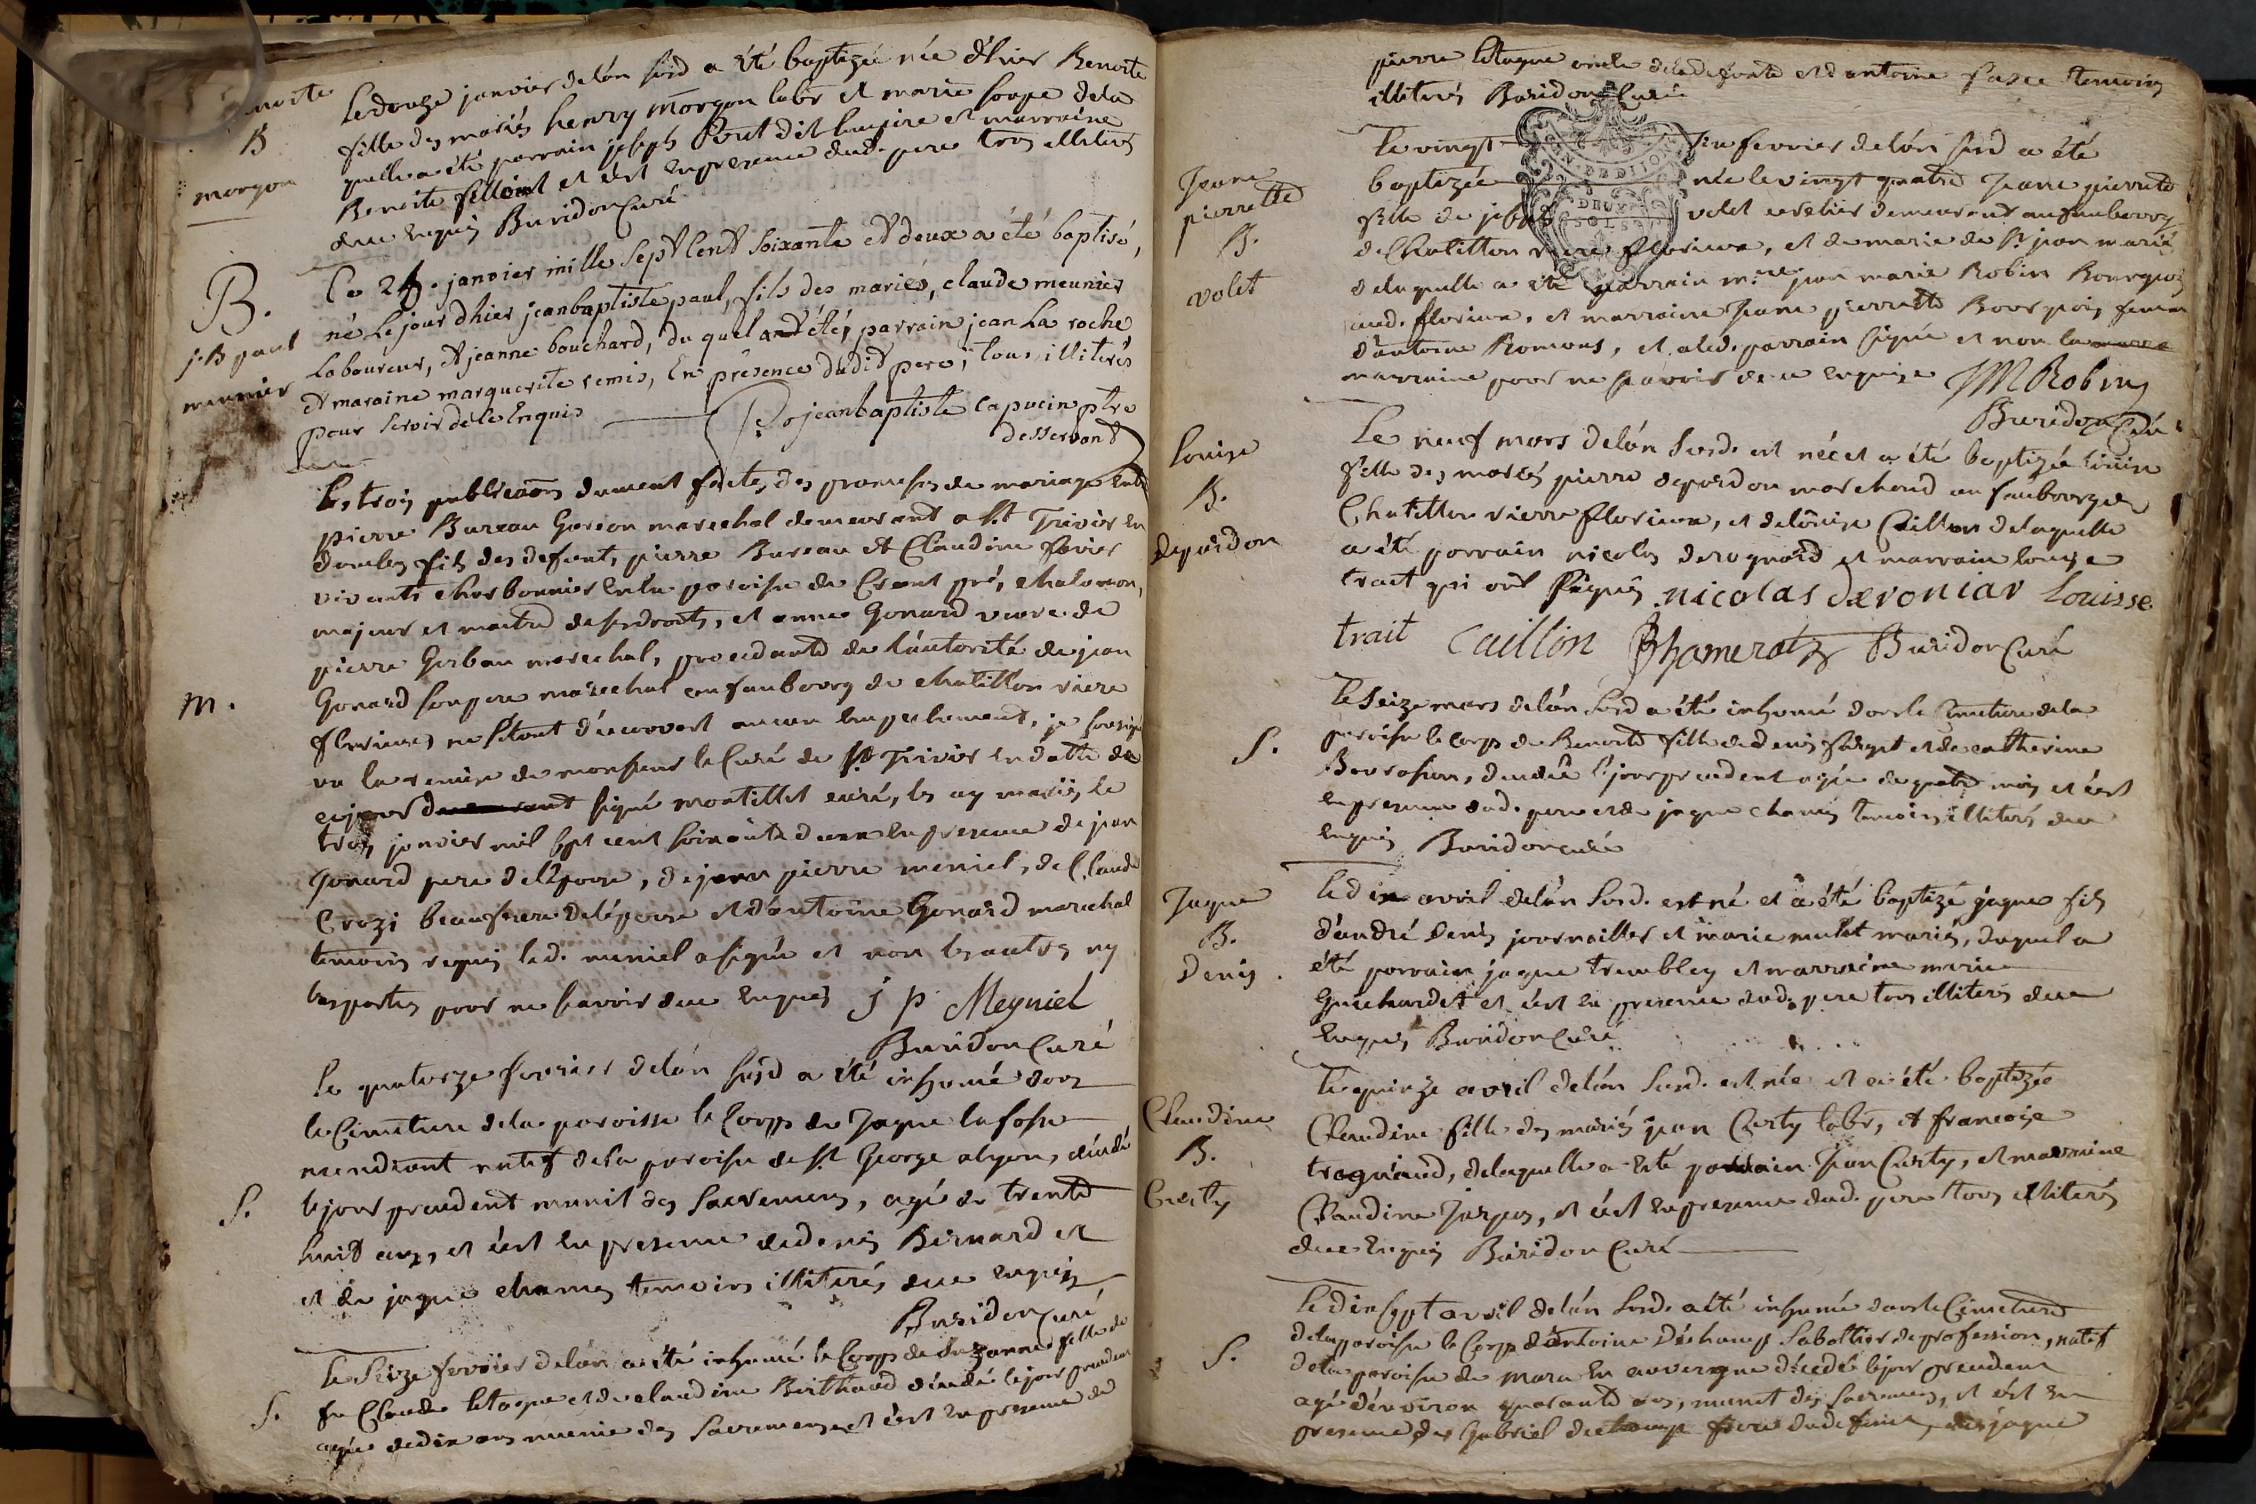 B
morgon
Le douze janvier de l'an susd a été baptizée née d'hier Benoite
fille des mariés henry morgon labr et marie soupe de la
quelle a été parrain joseph dit et marraine
Benoite et c'est en presence dud. pere tous illiteres
de ce enquis Buridon Curé
B.
j.B paul
meunier
Ce janvier mille sept cent soixante et deux a été baptisé,
né le jour d'hier jean baptiste paul, fils des mariés, claude meunier
Laboureur, et jeanne bouchard, du quel été parrain jean La roche
et maraine marguerite remis, en présence dudit pere, tous illiterés
pour servoir de ce Enquis
jean baptiste capucin ptre
desservant
m.
Les trois publications dument faites des promesses de mariage entre
pierre Bureau Garcon marechal demeurant a St Trivier en
dombes fils des defunts pierre Bureau et Claudine
vivants charbonnier en la paroisse de
majeur et maitre de ses droits, et anne Gonard veuve de
pierre Gerbau marechal, procedante de l'autorité de jean
Gonard son pere marechal au faubourg de chatillon viere
florieux, ne s'étant découvert aucun empechement, je soussigné
vu la remise de monsieur le Curé de St Trivier en datte de
ce jour signé montillet curé, les ay mariés le
trois janvier mil sept cent soixante deux en presence de jean
Gonard pere de l'Epouse, de jean pierre meniel, de Claude
Crozi beaufrere de l'épouse et d'antoine Gonard marechal
temoins requis led. meniel a signé et non les autres ny
les parties pour ne savoir de ce enquis j p Meyniel
Buridon Curé
S.
Le quatorze fevrier de l'an susd a été inhumé dans
le Cimetiere de la paroisse le Corps de Jaque lafosse
mendiant natif de la paroisse de St George a lyon, décédé
le jour precedent munit des sacremens, agé de trente
huit ans, et c'est en presence de denis Bernard et
et de jaque chames temoins illiterés, de ce enquis
Buridon Curé
S.
Le seize fevrier de l'an a été inhumé le Corps de Suzanne fille de
fu Claude letaque et de claudine Berthaud décédé le jour precedent
agée de dix ans munie des Sacremens et c'est en presence de
pierre letaque oncle de la defunte et d'antoine temoins
illiterés Buridon Curé
Jeanne
pierrette
B.
volet
Le vingt fevrier de l'an susd a été
baptizée née le vingt quatre Jeanne pierrette
fille de joseph volet demeurant au faubourg
de Chatillon viere florieux, et de marie de St jean mariés
de laquelle a été parrain jean marie Robin Bourgeois
aud. florieux, et marraine Jeanne pierrette Bourgeois femme
d'antoine Romans, et a led. parrain signé et non la
marraine pour ne sçavoir de ce enquise JM Robin
Buridon Curé
Louise
B.
depardon
Le neuf mars de l'an susd. est née et a été baptizée louise
fille des mariés pierre depardon marchand au faubourg de
Chatillon viere florieux, et de louise Caillon de laquelle
a été parrain nicolas derognard et marraine louise
trait qui ont signés nicolas daroniar Louisse
trait Caillon Buridon Curé
S.
Le seize mars de l'an susd a été inhumé dans le Cimetiere de la
paroisse le Corps de Benoite fille de denis et de catherine
décédée le jour precedent agée de quatre mois et c'est
en presence dud. pere et de jaque chames temoins illiterés de ce
enquis Buridon curé
Jaque
B.
Denis.
Le dix avril de l'an susd. est né et a été baptizé jaque fils
d'andré denis journaillier et marie mulet mariés, duquel a
été parrain jaque trembley et marraine marie
Guichardet et c'est en presence dud. pere tous illiterés de ce
enquis Buridon Curé
Claudine
B.
Curty
Le quinze avril de l'an susd. est née et a été baptizée
Claudine fille des mariés jean Curty labr, et francoise
trogniaud, de laquelle a été parrain Jean Curty, et marraine
Claudine et c'est en presence dud. pere tous illiterés
de ce enquis Buridon Curé
S.
Le dix sept avril de l'an susd. a été inhumé dans le Cimetiere
de la paroisse le Corps d'antoine Dechamp Sabottier de profession, natif
de la paroisse de mara en auvergne décedé le jour precedent
agé d'environ quarante ans, munit des Sacremens, et c'est en
presence de Gabriel dechamp frere du defunt, de jaque